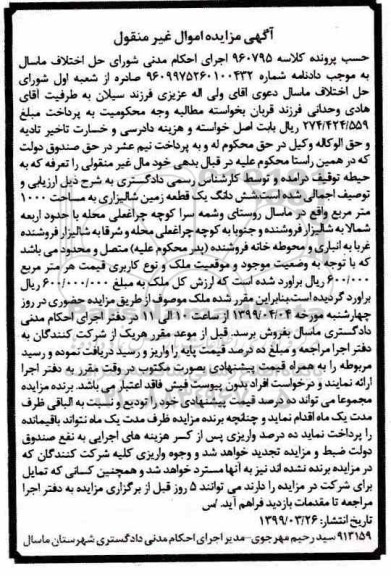 آگهی مزایده اموال غیر منقول
حسب پرونده کلاسه ۹۶۰۷۹۵ اجرای احکام مدنی شورای حل اختلاف ماسال
به موجب دادنامه شماره ۹۶۰۹۹۷۵۲۶۰۱۰۰۴۳۲ صادره از شعبه اول شورای
حل اختلاف ماسال دعوی آقای ولی اله عزیزی فرزند سیلان به طرفیت آقای
هادی وحدانی فرزند قربان بخواسته مطالبه وجه محکومیت به پرداخت مبلغ
۲۷۴/۴۲۴/۵۵۹ ریال بابت اصل خواسته و هزینه دادرسی و خسارت تاخیر تادیه
و حق الوکاله وکیل در حق محکوم له و به پرداخت نیم عشر در حق صندوق دولت
که در همین راستا محکوم علیه در قبال بدهی خود مال غیر منقولی را تعرفه که به
حیطه توقیف درآمده و توسط کارشناس رسمی دادگستری به شرح ذیل ارزیابی و
توصیف اجمالی شده است شش دانگ یک قطعه زمین شالیزاری به مساحت ۱۰۰۰
متر مربع واقع در ماسال روستای وشمه سرا کوچه چراغعلی محله با حدود اربعه
شمالا به شالیزار فروشنده و جنوبا به کوچه چراغعلی محله و شرقا به شالیزار فروشنده
غربا به انباری و محوطه خانه فروشنده (پدر محکوم علیه) متصل و محدود می باشد
که با توجه به وضعیت موجود و موقعیت ملک و نوع کاربری قیمت هر متر مربع
۶۰۰/۰۰۰ ریال برآورد شده است که ارزش کل ملک به مبلغ ۶۰۰/۰۰۰/۰۰۰ ریال
برآورد گردیده است.بنابراین مقرر شده ملک موصوف از طریق مزایده حضوری در روز
چهارشنبه مورخه ۱۳۹۹/۰۴/۰۴ از ساعت ۱۰ الی ۱۱ در دفتر اجرای احکام مدنی
دادگستری ماسال بفروش برسد. قبل از موعد مقرر هریک از شرکت کنندگان به
دفتر اجرا مراجعه و مبلغ ده درصد قیمت پایه را واریز و رسید دریافت نموده و رسید
مربوطه را به همراه قیمت پیشنهادی بصورت مکتوب در وقت مقرر به دفتر اجرا
ارائه نمایند و درخواست افراد بدون پیوست فیش فاقد اعتبار می باشد. برنده مزایده
مجموعا می تواند ده درصد قیمت پیشنهادی خود را تودیع و نسبت به الباقی ظرف
مدت یک ماه اقدام نماید و چنانچه برنده مزایده ظرف مدت یک ماه نتواند باقیمانده
را پرداخت نماید ده درصد واریزی پس از کسر هزینه های اجرایی به نفع صندوق
دولت ضبط و مزایده تجدید خواهد شد و وجوه واریزی کلیه شرکت کنندگان که
در مزایده برنده نشده اند نیز به آنها مسترد خواهد شد و همچنین کسانی که تمایل
برای شرکت در مزایده را دارند می توانند ۵ روز قبل از برگزاری مزایده به دفتر اجرا
مراجعه تا مقدمات بازدید فراهم آید. /س
تاریخ انتشار: ۱۳۹۹/۰۳/۲۶
۹۱۳۱۵۹ سید رحیم مهرجوی-مدیر اجرای احکام مدنی دادگستری شهرستان ماسال